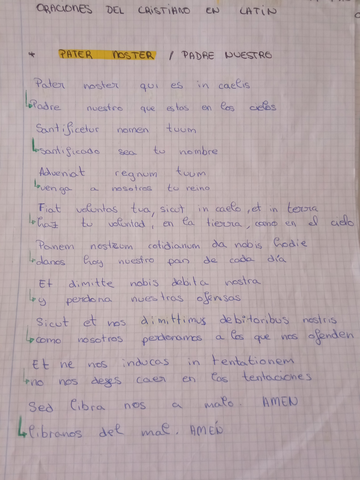 ORACIONES DEL CRISTIANO EN LATIN
* PATER NOSTER / PADRE NUESTRO
Pater noster qui es in caelis
Padre nuestro que estas en los cielos
Santificetur nomen tuum
santificado sea tu nombre
Adveniat regnum tuum
venga a nosotros tu reino
Fiat voluntas tua, sicut in caelo, et in terra
haz tu voluntad, en la tierra, como en el cielo
Panem nostrum cotidianum da nobis hodie
danos hoy nuestro pan de cada día
Et dimitte nobis debita nostra
y perdona nuestras ofensas
Sicut et nos dimittimus debitoribus nostris
como nosotros perdonamos a los que nos ofenden
Et ne nos inducas in tentationem
no nos dejes caer en las tentaciones
Sed libra nos a malo. AMEN
libranos del mal. AMEN